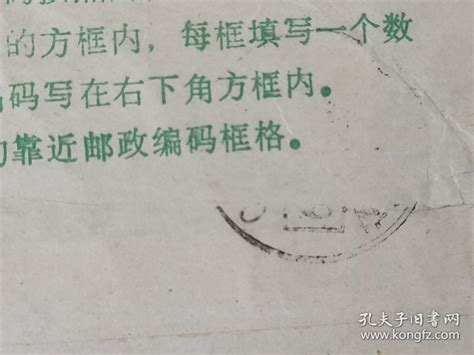 的方框内，每框填写一个数
码写在右下角方框内。
靠近邮政编码框格。
孔夫子旧书网
www.kongfz.com